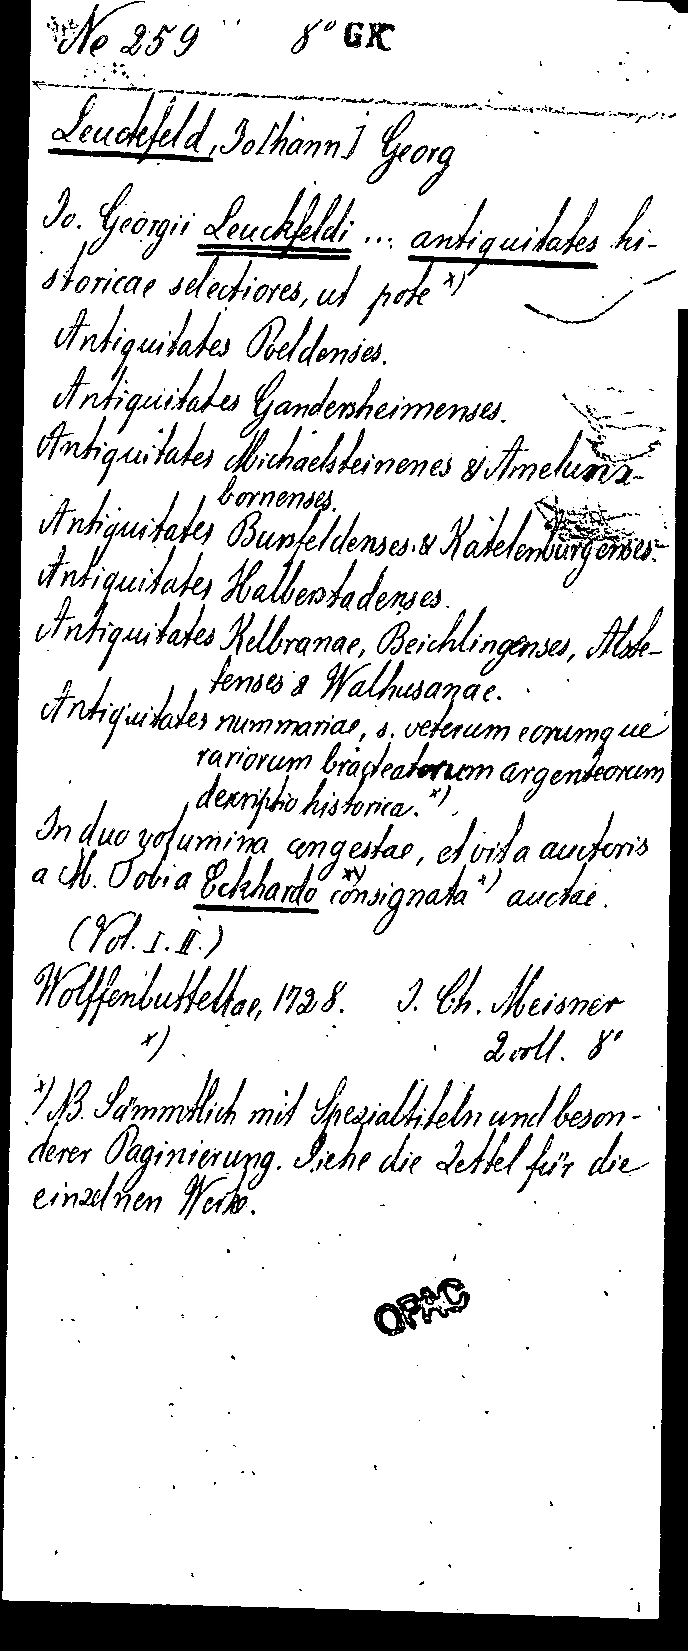 Ne 259 8° GK
Leuckfeld, Jo[hann] Georg
Jo. Georgii Leuckfeldi ... antiquitates hi-
storicae selectiores, ut pote x)
Antiquitates Poeldenses.
Antiquitates Gandersheimenses.
Antiquitates Michaelsteinenes & Amelunx-
bornenses.
Antiquitates Bursfeldenses & Katelenburgenses.
Antiquitates Halberstadenses.
Antiquitates Kelbranae, Beichlingenses, Alste-
tenses & Walhusanae.
Antiquitates nummariae, s. veterum eorumque
rariorum bracteatorum argenteorum
descriptio historica. x)
In duo volumina congestae, et vita auctoris
a M. Tobia Eckhardo xx) consignata x) auctae.
(Vol. I. II.)
Wolffenbuttelae, 1728. J. Ch. Meisner
x) 2 voll. 8°
x) NB. Sämmtlich mit Spezialtiteln und beson-
derer Paginierung. Siehe die Zettel für die
einzelnen Werke.
OPAC